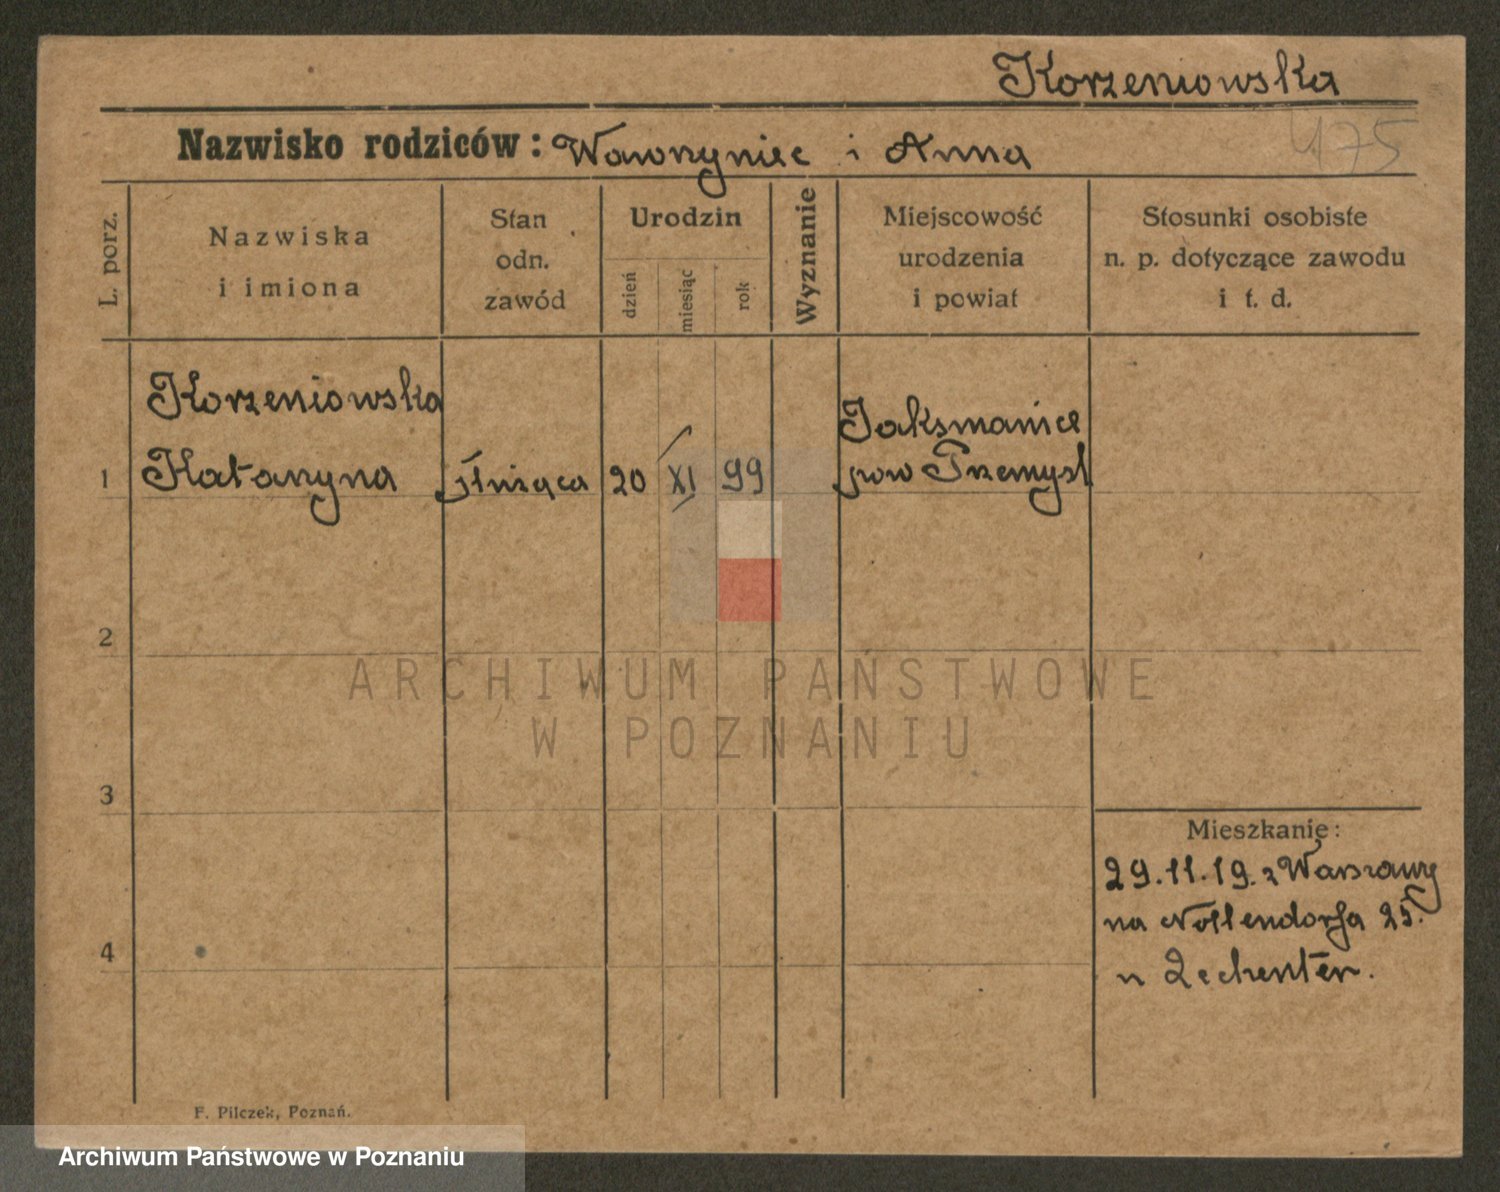 Korzeniowska
Nazwisko rodziców: Wawrzyniec i Anna
475
L. porz.
Nazwiska
i imiona
Stan
odn.
zawód
Urodzin
dzień
miesiąc
rok
Wyznanie
Miejscowość
urodzenia
i powiat
Stosunki osobiste
n. p. dotyczące zawodu
i t. d.
Korzeniowska
Jaksmanice
1 Katarzyna służąca 20 XI 99 pow Przemysl
2
ARCHIWUM PAŃSTWOWE
W POZNANIU
3
Mieszkanie:
29.11.19. z Warszawy
na Nollendorfa 25.
4
u
F. Pilczek, Poznań.
Archiwum Państwowe w Poznaniu